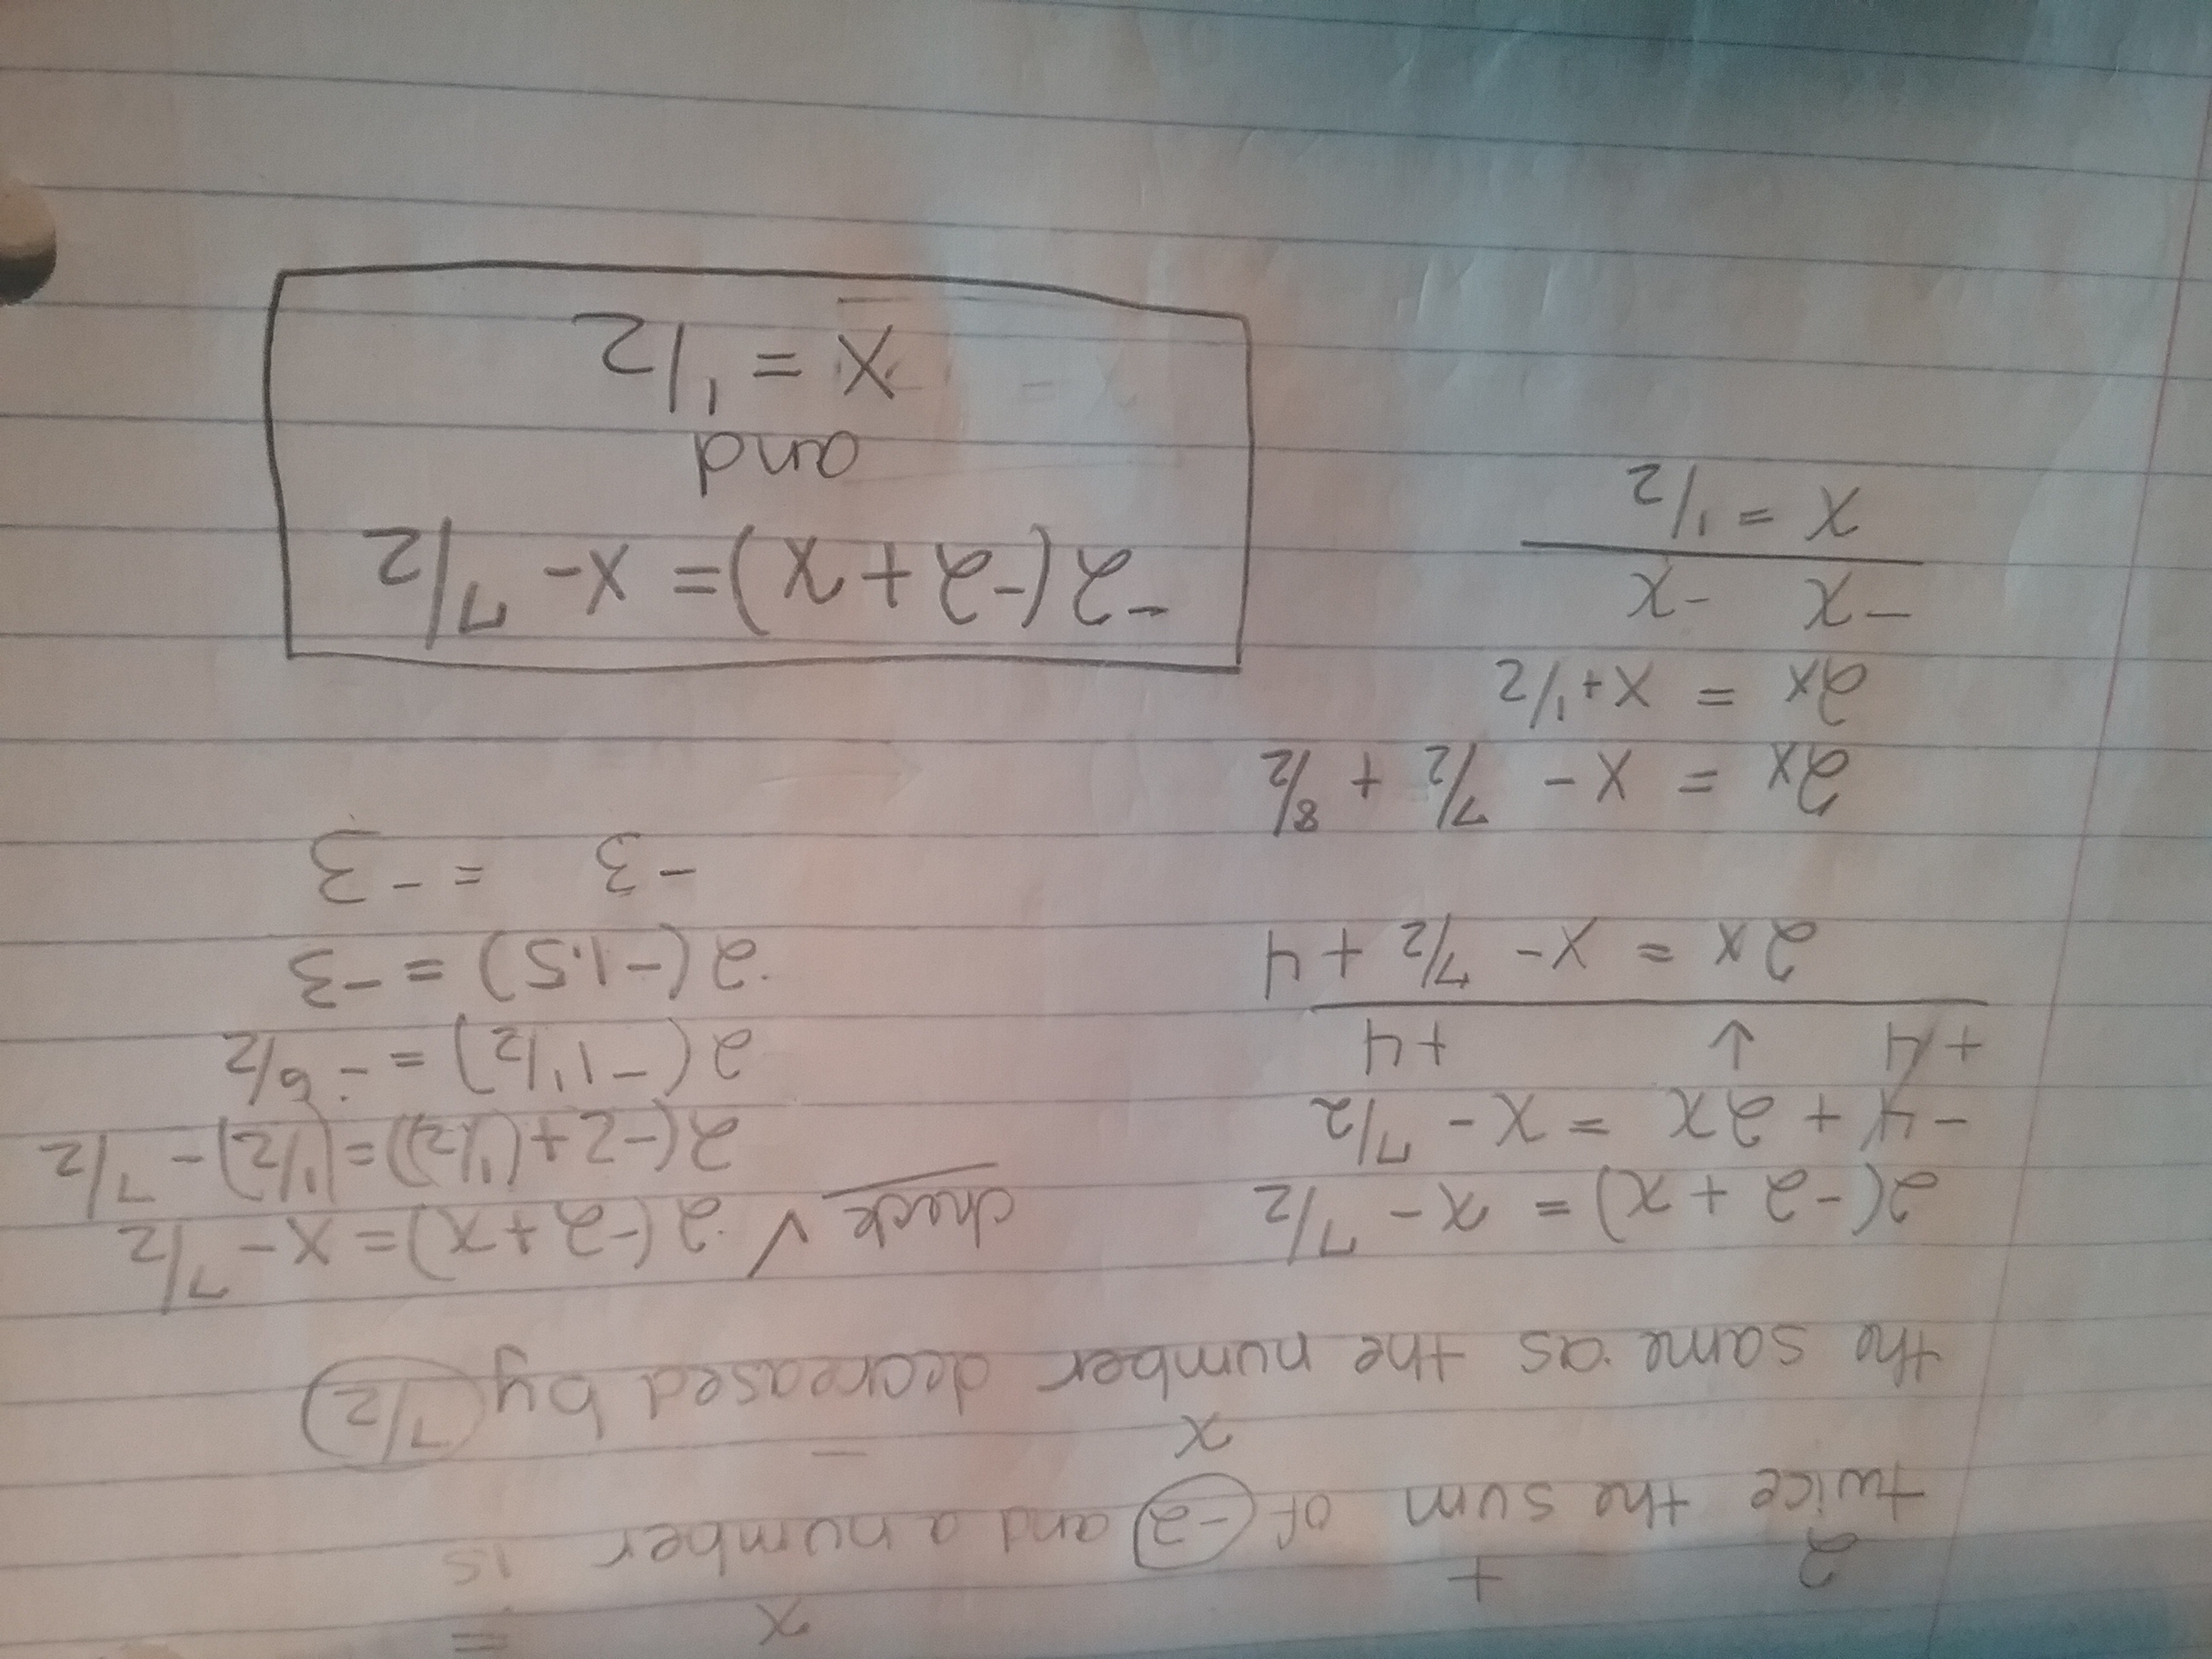 x =
2 +
twice the sum of -2 and a number is
x -
the same as the number decreased by 7/2
2(-2 + x) = x - 7/2
-4 + 2x = x - 7/2
+4 ↓ +4
2x = x - 7/2 + 4
2x = x - 7/2 + 8/2
2x = x + 1/2
-x -x
x = 1/2
check ✓ 2(-2+x) = x - 7/2
2(-2+(1/2)) = (1/2) - 7/2
2(-1 1/2) = -6/2
2(-1.5) = -3
-3 = -3
-2(-2+x) = x - 7/2
and
x = 1/2